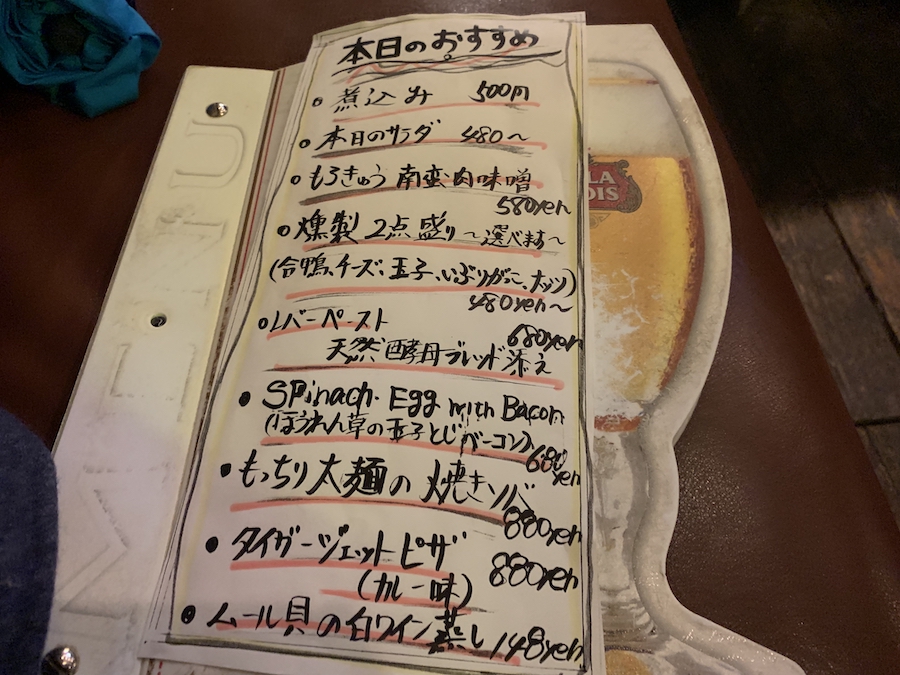 MENU
本日のおすすめ
煮込み 500円
本日のサラダ 480〜
もろきゅう 南蛮肉味噌
580yen
燻製 2点盛り〜選べます〜
(合鴨、チーズ、玉子、いぶりがっこ、ナッツ)
480yen〜
レバーペースト 680yen
天然酵母ブレッド添え
Spinach. Egg with Bacon
(ほうれん草の玉子とじベーコン)
680yen
もっちり太麺の焼きソバ
880yen
タイガージェットピザ
(カレー味) 880yen
ムール貝の白ワイン蒸し 148yen
LA
OIS